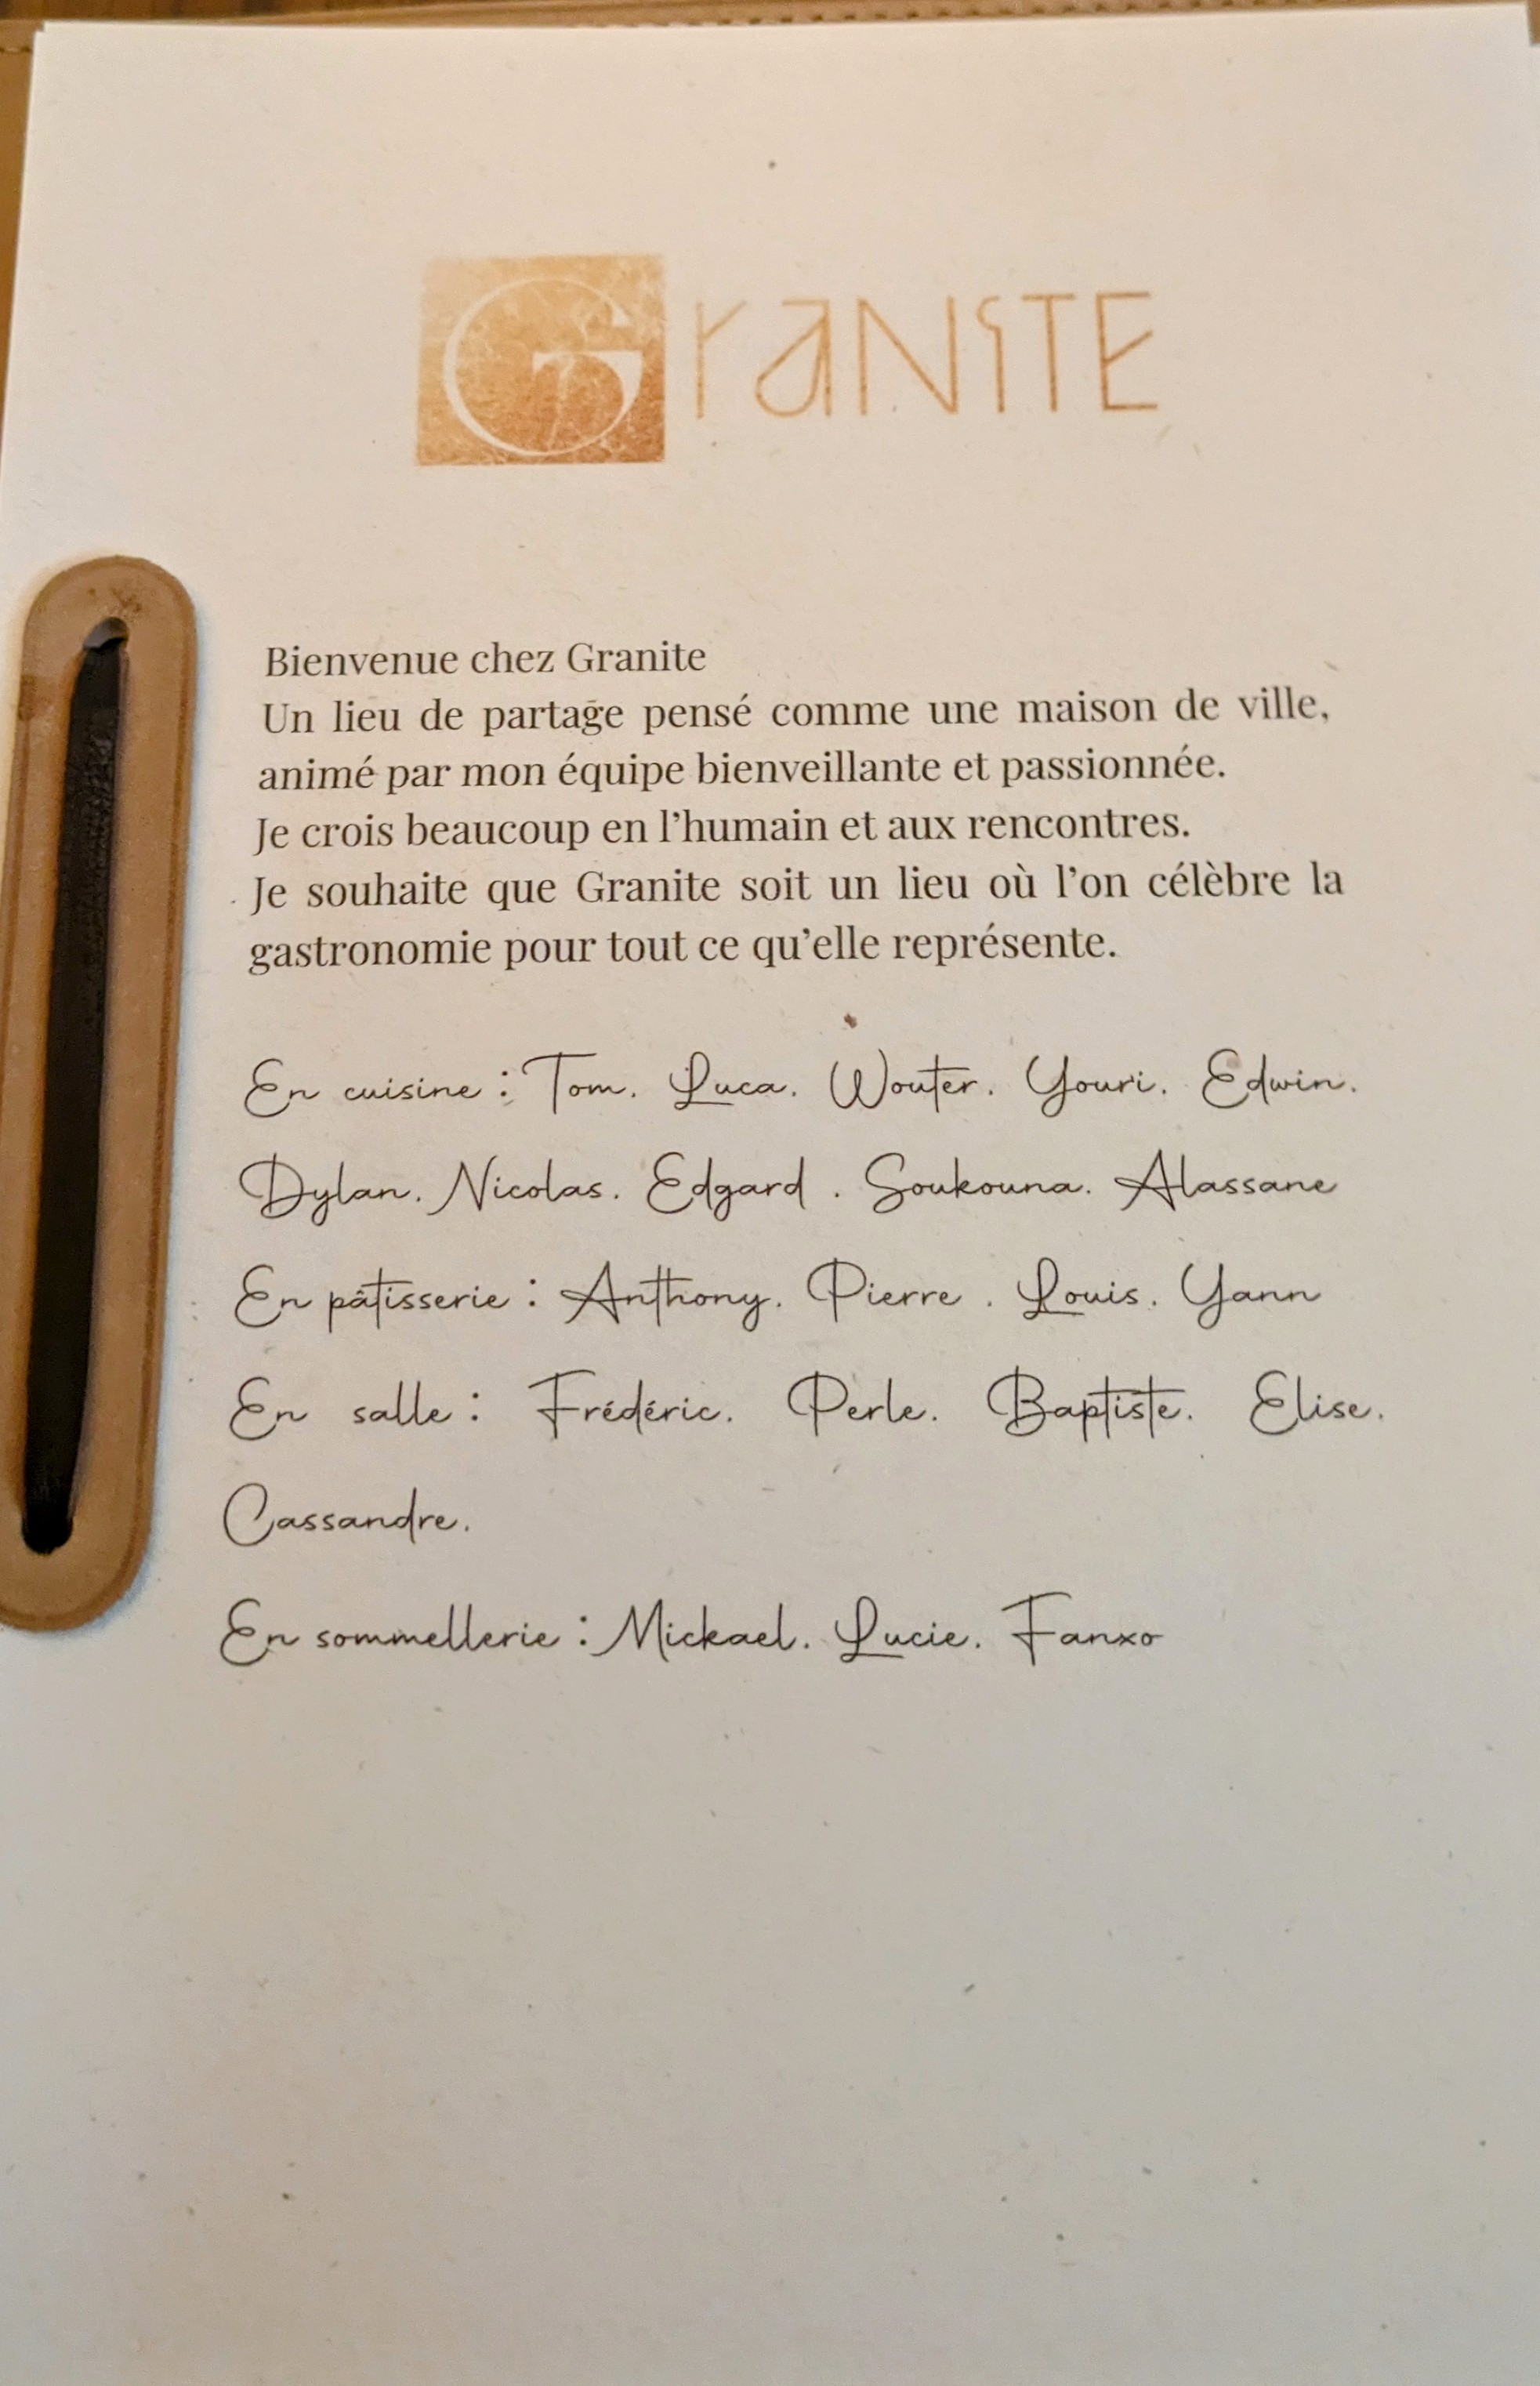 GRANITE
Bienvenue chez Granite
Un lieu de partage pensé comme une maison de ville,
animé par mon équipe bienveillante et passionnée.
Je crois beaucoup en l’humain et aux rencontres.
Je souhaite que Granite soit un lieu où l’on célèbre la
gastronomie pour tout ce qu’elle représente.
En cuisine : Tom. Luca. Wouter. Youri. Edwin.
Dylan. Nicolas. Edgard . Soukouna. Alassane
En pâtisserie : Anthony. Pierre . Louis. Yann
En salle : Frédéric. Perle. Baptiste. Elise.
Cassandre.
En sommellerie : Mickael. Lucie. Fanxo